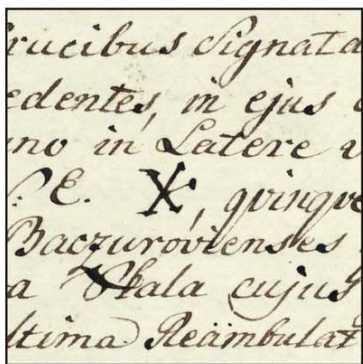 rucibus Signata
edentes, in ejus
no in Latere
P. E. X, qvinqve
Baczuróvienses
a Skala cujus
ltima Reambulat